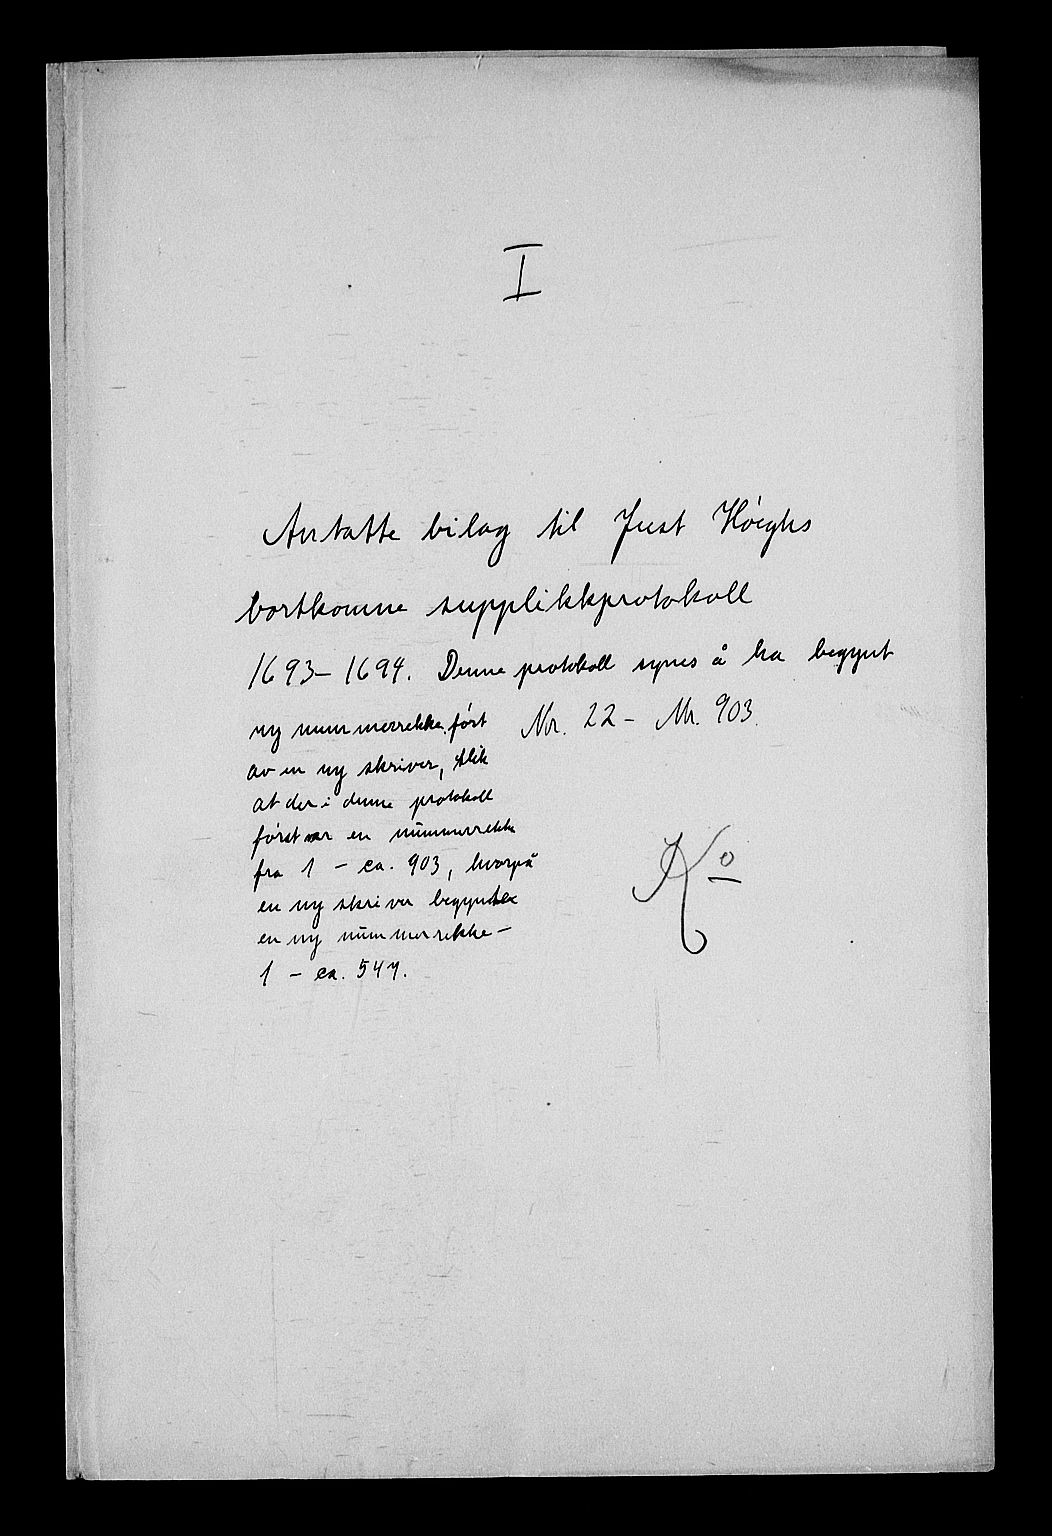 I
Antatte bilag til Just Høighs
bortkomne supplikkprotokoll
1693– 1694. Denne protokoll synes å ha begynt
ny nummerrekke ført Nr. 22 – Nr. 903.
av en ny skriver, slik
at der i denne protokoll
først var en nummerrekke
fra 1 – ca. 903, hvorpå
en ny skriver begynte
en ny nummerrekke –
1 – ca. 547.